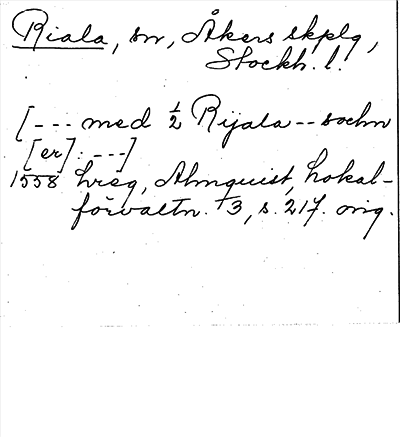 Riala, sn, Åkers skplg,
Stockh. l.
[--- med ½ Rijala -- sochn
[er]: ---]
1558 hreg, Almquist, Lokal-
förvaltn. 13, s. 217. orig.